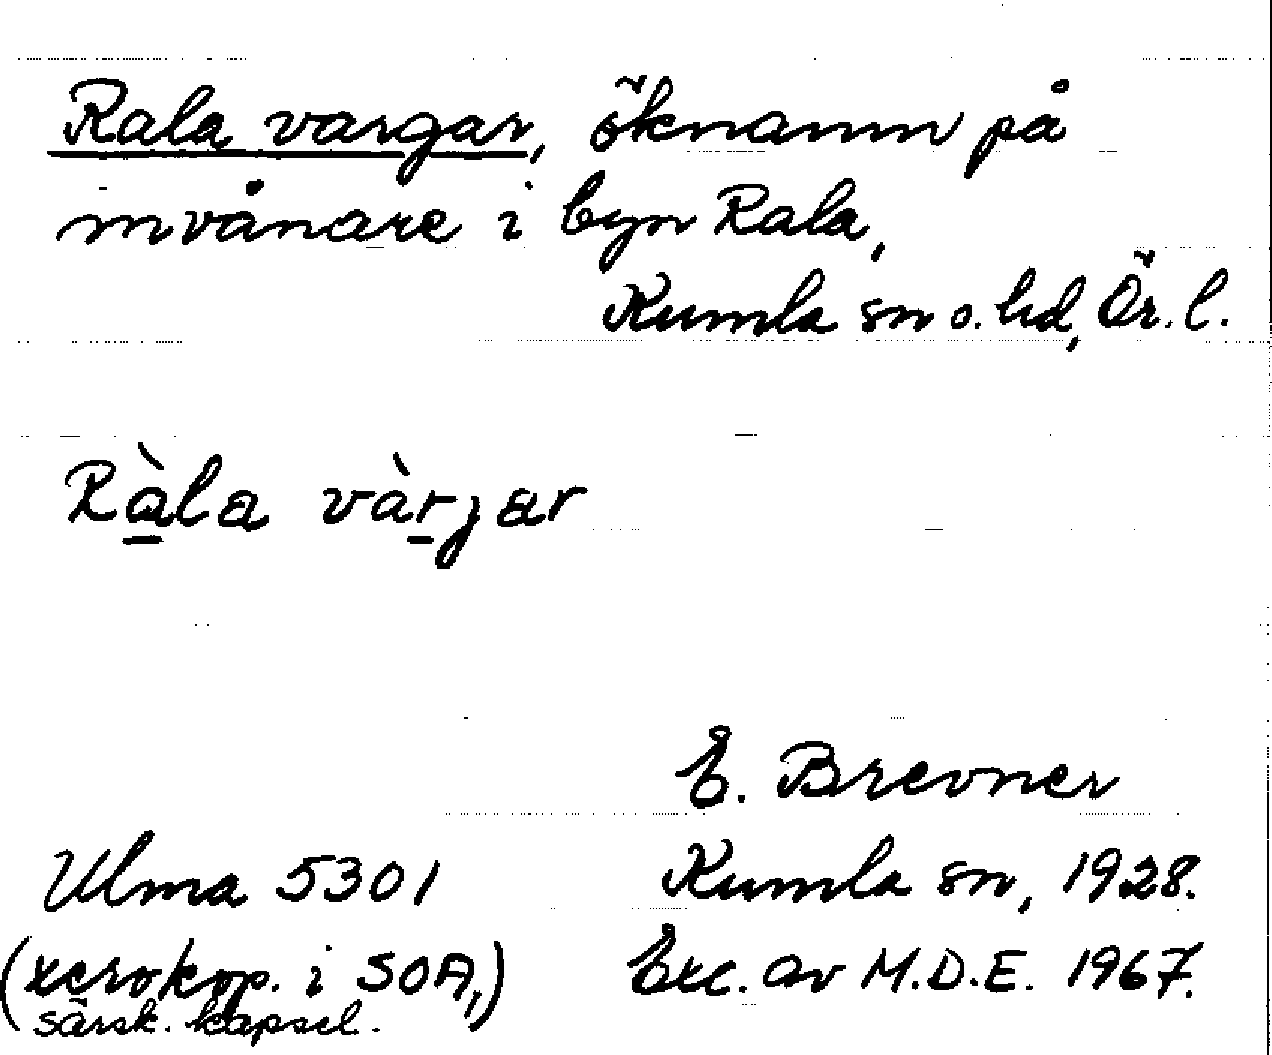 Rala vargar, öknamn på
invånare i byn Rala,
Kumla sn o. hd, Ör. l.
Ràla vàrjar
E. Brevner
Ulma 5301 Kumla sn, 1928.
(xerokop. i SOA,) Exc. av M.D.E. 1967.
särsk. kapsel.